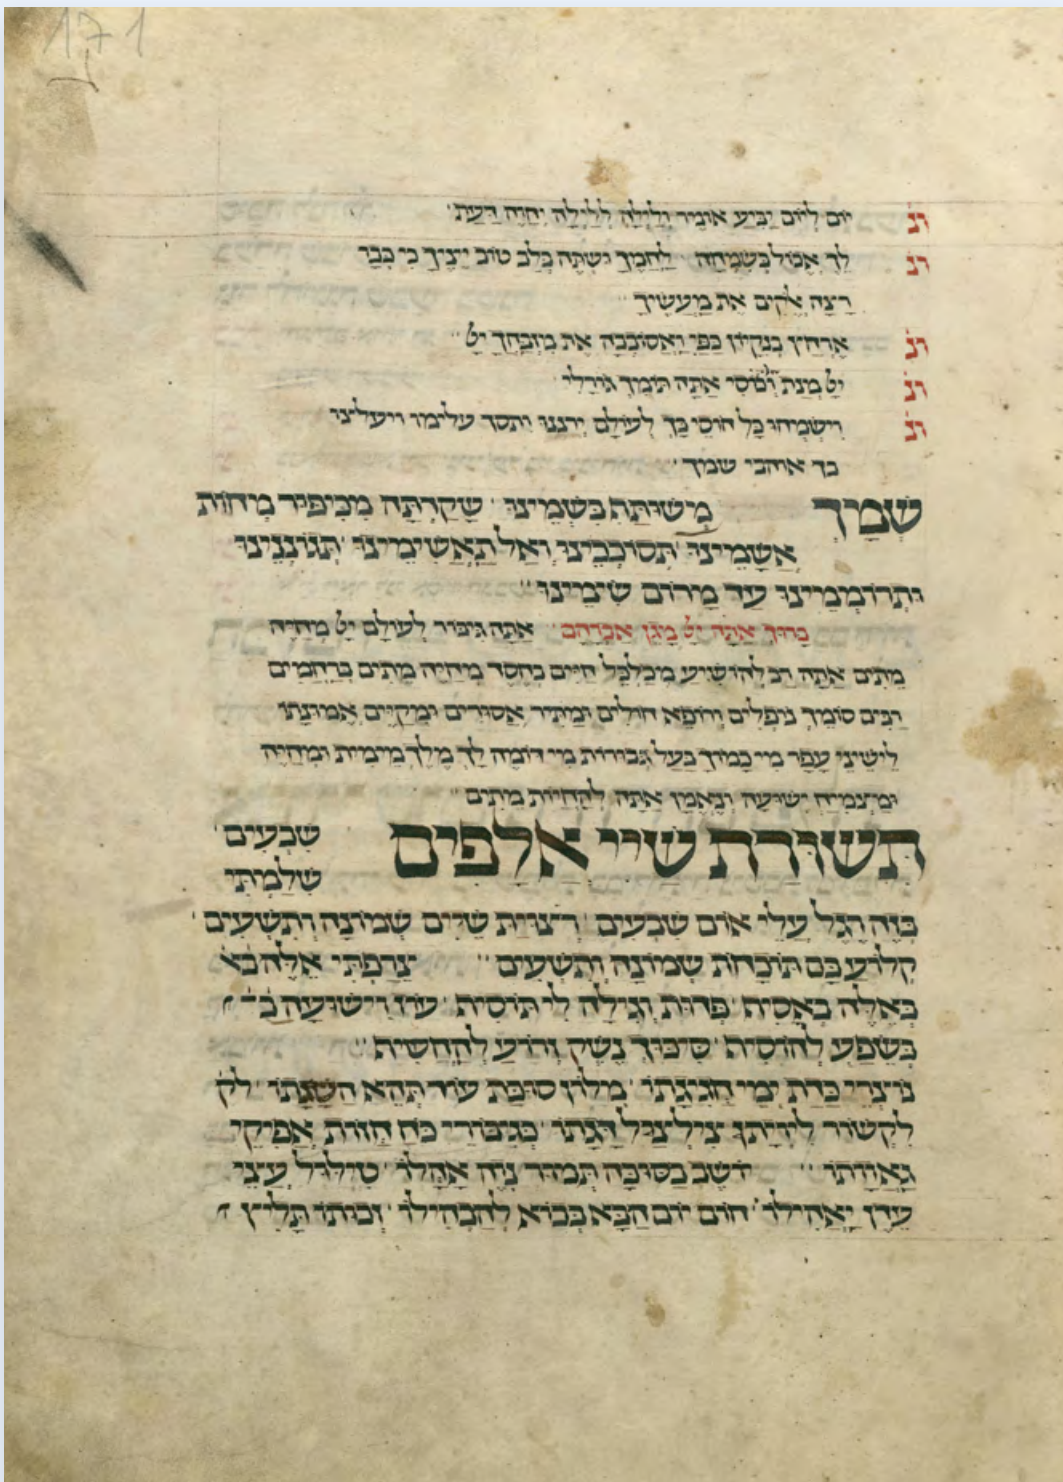 171
ונ֗ יוֹם לְיוֹם יַבִּיעַ אוֹמֶר וְלַיְלָה לְלַיְלָה יְחַוֶּה דַּעַת ׳
ונ֗ לֵךְ אֱכוֹל בְּשִׂמְחָה לַחְמֶךָ וּשְׁתֵה בְלֵב טוֹב יֵינֶךָ כִּי כְבָר
רָצָה אֱלֹקִים אֶת מַעֲשֶׂיךָ ׳׳
ונ֗ אֶרְחַץ בְּנִקָּיוֹן כַּפָּי וַאֲסוֹבְבָה אֶת מִזְבַּחֲךָ יְיָ ׳׳
ונ֗ יְיָ מְנָת חלקי וְכוֹסִי אַתָּה תּוֹמִיךְ גּוֹרָלִי ׳
ונ֗ וְיִשְׂמְחוּ כָל חוֹסֵי בָךְ לְעוֹלָם יְרַנֵּנוּ ותסך עלימו ויעלצו
בך אוהבי שמך ׳׳
שִׁמְךָ מְשׁוּתַּת בִּשְׁמֵינוּ ׳ שָׁקַדְתָּה מִכִּיפּוּר מְחוֹת
אֲשָׁמֵינוּ ׳ תְּסוֹבְבֵינוּ וְאַל תַּאֲשִׁימֵינוּ ׳ תְּגוֹנְנֵינוּ
וּתְרוֹמְמֵינוּ עַד מָרוֹם שִׂימֵינוּ ׳׳
בָּרוּךְ אַתָּה יְיָ מָגֵן אַבְרָהָם ׳ אַתָּה גִּיבּוֹר לְעוֹלָם יְיָ מְחַיֵּה
מֵתִים אַתָּה רַב לְהוֹשִׁיעַ מְכַלְכֵּל חַיִּים בְּחֶסֶד מְחַיֵּה מֵתִים בְּרַחֲמִים
רַבִּים סוֹמֵךְ נוֹפְלִים וְרוֹפֵא חוֹלִים וּמַתִּיר אֲסוּרִים וּמְקַיֵּים אֱמוּנָתוֹ
לִישֵׁינֵי עָפָר מִי כָמוֹךָ בַּעַל גְּבוּרוֹת מִי דוֹמֶה לָךְ מֶלֶךְ מֵימִית וּמְחַיֶּה
וּמַצְמִיחַ יְשׁוּעָה וְנֶאֱמָן אַתָּה לְהַחֲיוֹת מֵתִים ׳׳
תְּשׁוּרַת שַׁיי אֲלָפִים שִׁבְעִים ׳
שִׁלַּמְתִּי
בְּזֶה הֶגֶל עֲלֵי אוֹם שִׁבְעִים ׳ רְצוּיַת שָׂרִים שְׁמוֹנָה וְתִשְׁעִים ׳
קְלוֹעַ בָּם תּוֹכָחוֹת שְׁמוֹנָה וְתִשְׁעִים ׳׳ צֵרַפְתִּי אֵלֶּה
בְּאֵלֶּה בְאָסִית ׳ פְּדוּת וְגִילָה לִי תּוֹסִית ׳ עוֹז וִישׁוּעָה
בְּשֶׁפַע לְחוֹסִית ׳ סִיבּוּךְ נֶשֶׁק וְרוֹעַ לְהַחֲשִׁית ׳׳
נוֹצְרֵי כַדָּת יְמֵי חֲגִיגָתוֹ ׳ מְלוֹן סוּכַּת עוֹר תְּהֵא הַשָּׂגָתוֹ ׳
לִקְשׁוֹר לִוְיָתָן צִילְצוּל דָּגָתוֹ ׳ כְּגִיבּוֹרֵי כֹחַ חֲזוֹת אֲפִיקֵי
גַּאֲוָתוֹ ׳׳ יוֹשֵׁב בְּסוּכָּה תְּמוּר נְוֵה אָהֳלוֹ ׳ טִילּוּל עֲצֵי
עֵדֶן יַאֲהִילוֹ ׳ חוֹם יוֹם הַבָּא בְּבוֹא לְהַבְהִילוֹ ׳ זְכוּתוֹ תָּלִיץ